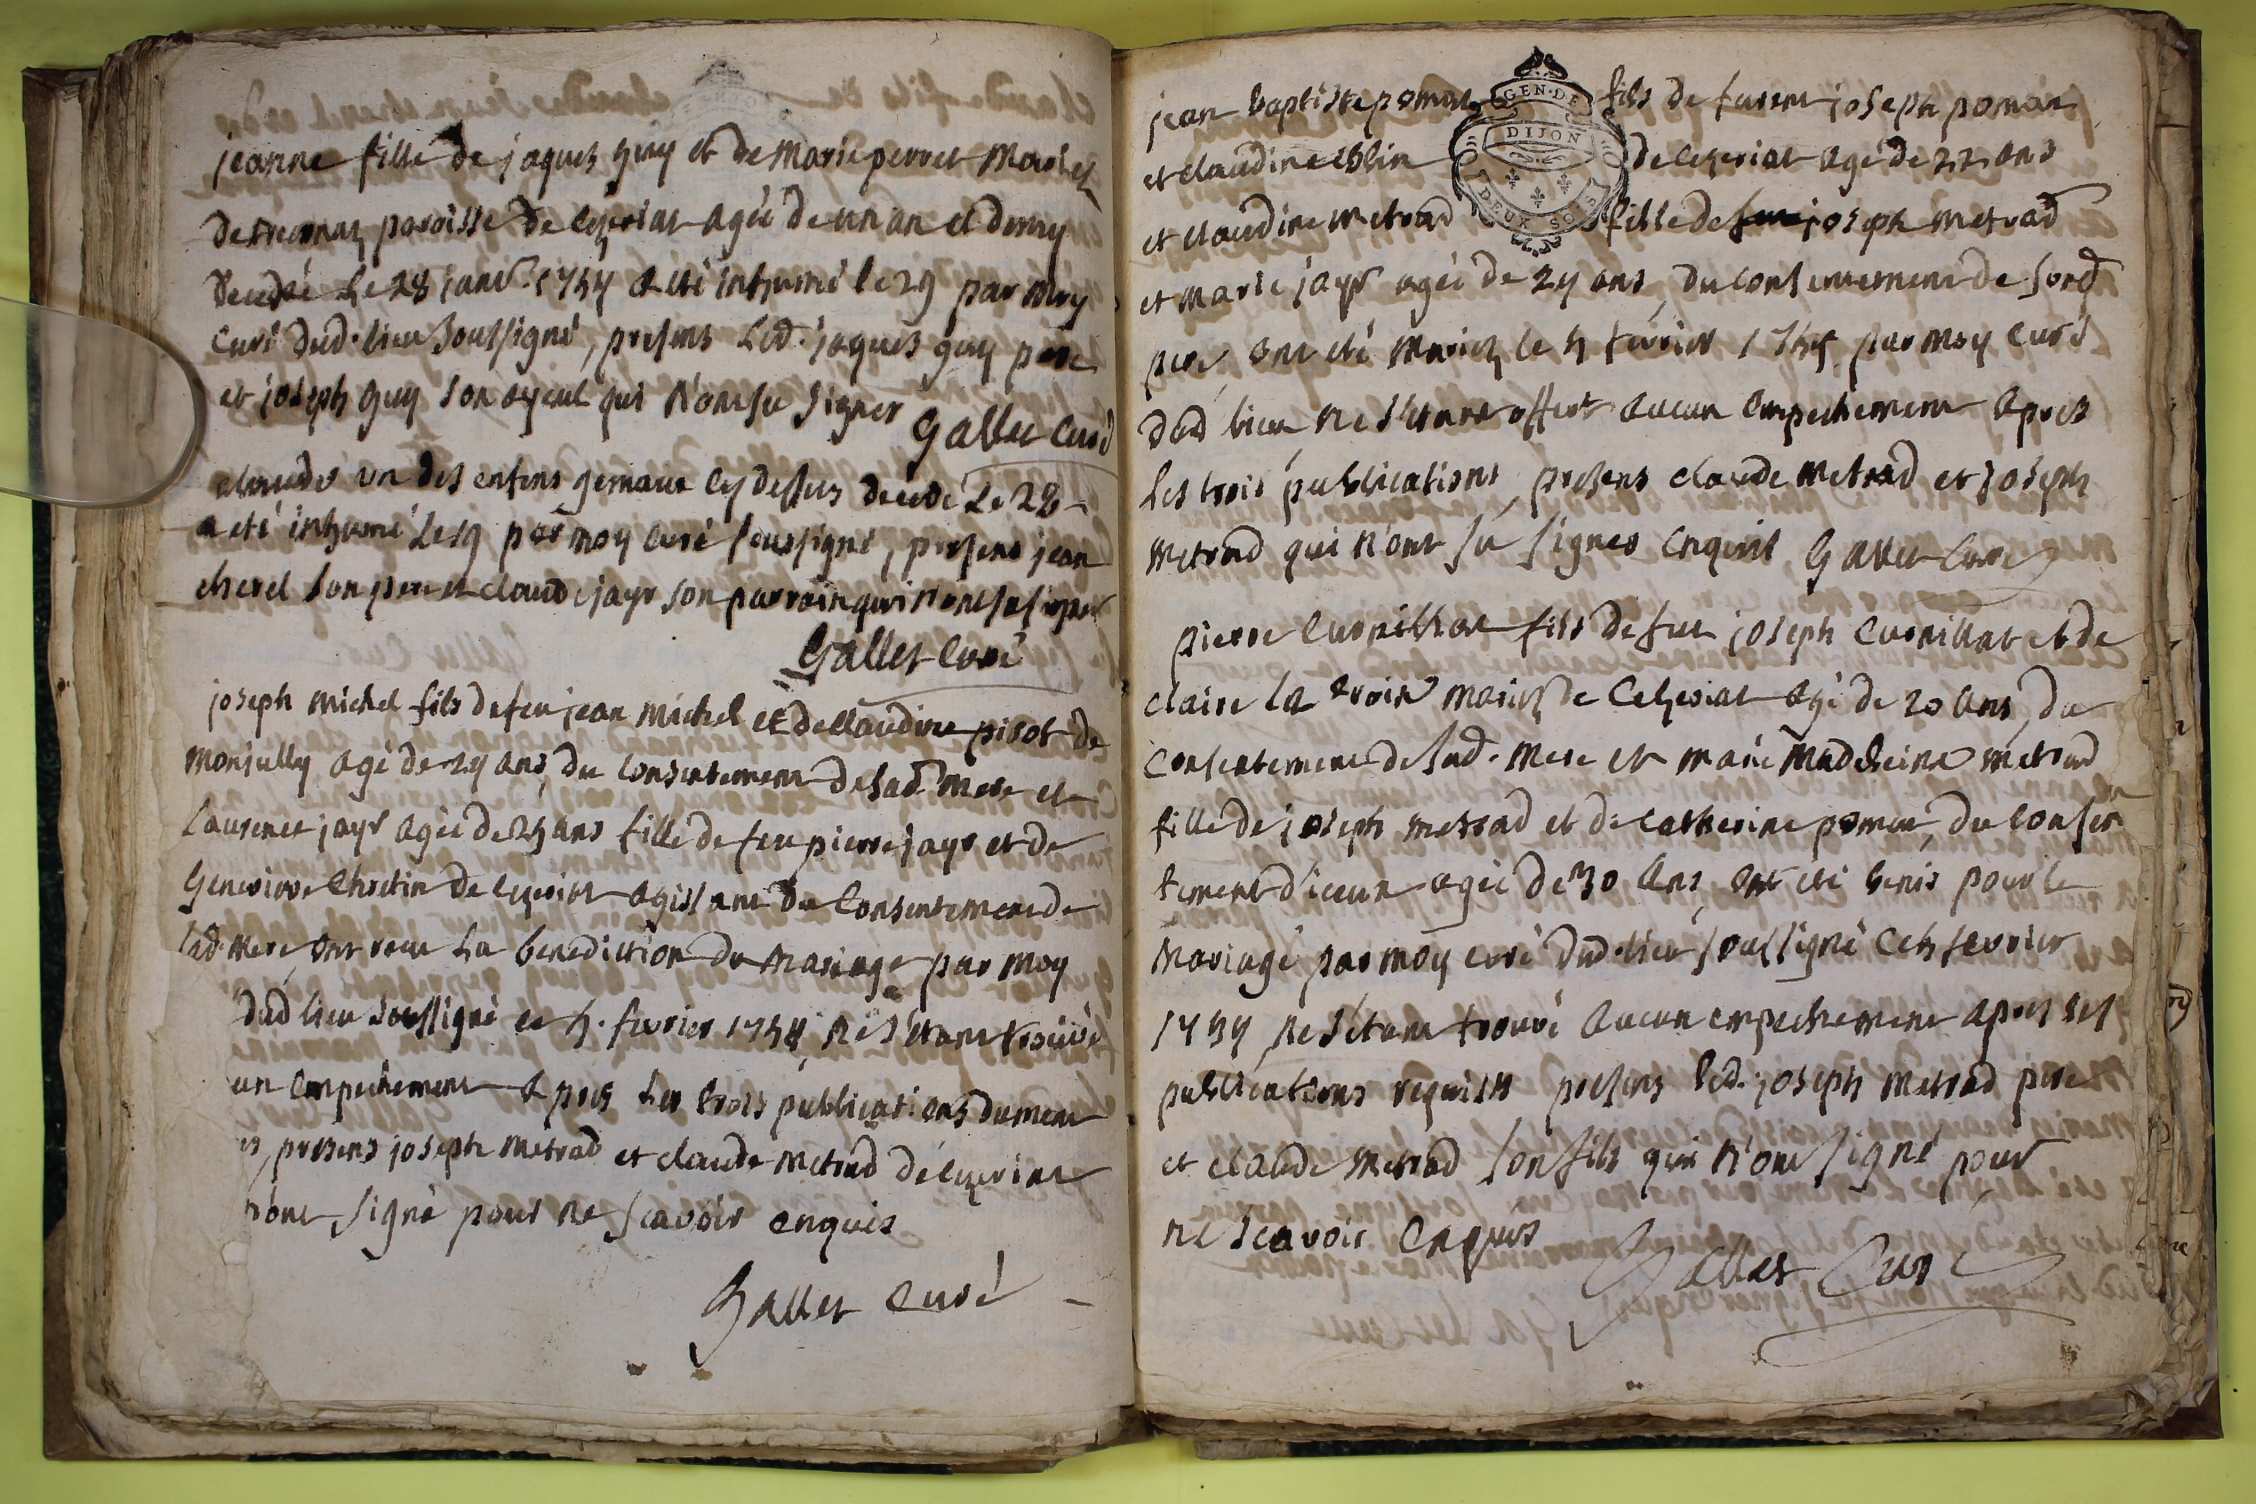 jeanne fille de jaques guy et de Marie perret Mariez
de paroisse de Ceyzeriat agée de un an et demy
decedée Le 28 janvr. 1754 a eté inhumé le 29 par moy
Curé dud. lieu soussigné, presens Led. jaques guy pere
et joseph guy son ayeul qui n'ont su signer Gallet Curé
claude un des enfens gemaux Cy dessus decedé Le 28
a eté inhumé Le 29 par moy Curé soussigné, presens jean
cherel son pere et claude jayr son parrain qui n'ont su signer
Gallet Curé
joseph Michel fils de feu jean Michel et de Claudine pirot de
Monjully agé de 24 ans, du Consentement de sad. Mere et
Laurence jayr agée de ans fille de feu pierre jayr et de
Genevieve Chretin de Ceyzeriat agissant du Consentement de
sad. Mere, ont receu La benediction du Mariage par Moy
dud lieu soussigné ce 5. fevrier 1754, ne s'etant trouvé
un empechement apres Les trois publications dument
presens joseph Metrad et claude Metrad de Ceyzeriat
n'ont signé pour ne scavoir enquis
Gallet Curé
jean baptiste poman GEN·DE fils de furent joseph poman
et claudine eblin DIJON de Ceyzeriat agé de 22 ans
et claudine Metrad DEUX SOLS fille de joseph Metrad
et Marie jayr agée de 24 ans, du Consentement de sond
pere, ont eté Mariez le 5 fevrier 1754 par moy Curé
dud lieu ne s'etant offert aucun empechement apres
Les trois publications, presens claude Metrad et joseph
Metrad qui n'ont su signer enquis Gallet Curé
pierre Curnillat fils de feu joseph Curnillat et de
claire La Mariez de Ceyzeriat agé de 20 ans, du
Consentement de sad. Mere et Marie Madeleine Metrad
fille de joseph Metrad et de Catherine poman, du Consen
tement d'iceux agée de 30 ans, ont eté benis pour le
Mariage par moy curé dud. lieu soussigné ce 5 fevrier
1754 ne s'etant trouvé aucun empechement apres les
publications requises presens led. joseph Metrad pere
et claude Metrad son fils qui n'ont signé pour
ne scavoir enquis Gallet Curé